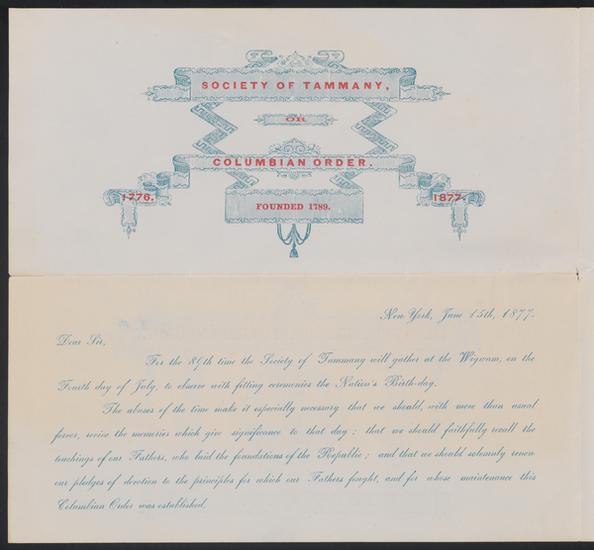 SOCIETY OF TAMMANY,
OR
COLUMBIAN ORDER.
1776.
1877.
FOUNDED 1789.
New York, June 15th, 1877.
Dear Sir,
For the 89th time the Society of Tammany will gather at the Wigwam, on the
Fourth day of July, to observe with fitting ceremonies the Nation's Birth-day.
The abuses of the time make it especially necessary that we should, with more than usual
force, revive the memories which give significance to that day; that we should faithfully recall the
teachings of our Fathers, who laid the foundations of the Republic; and that we should solemnly renew
our pledges of devotion to the principles for which our Fathers fought, and for whose maintenance this
Columbian Order was established.